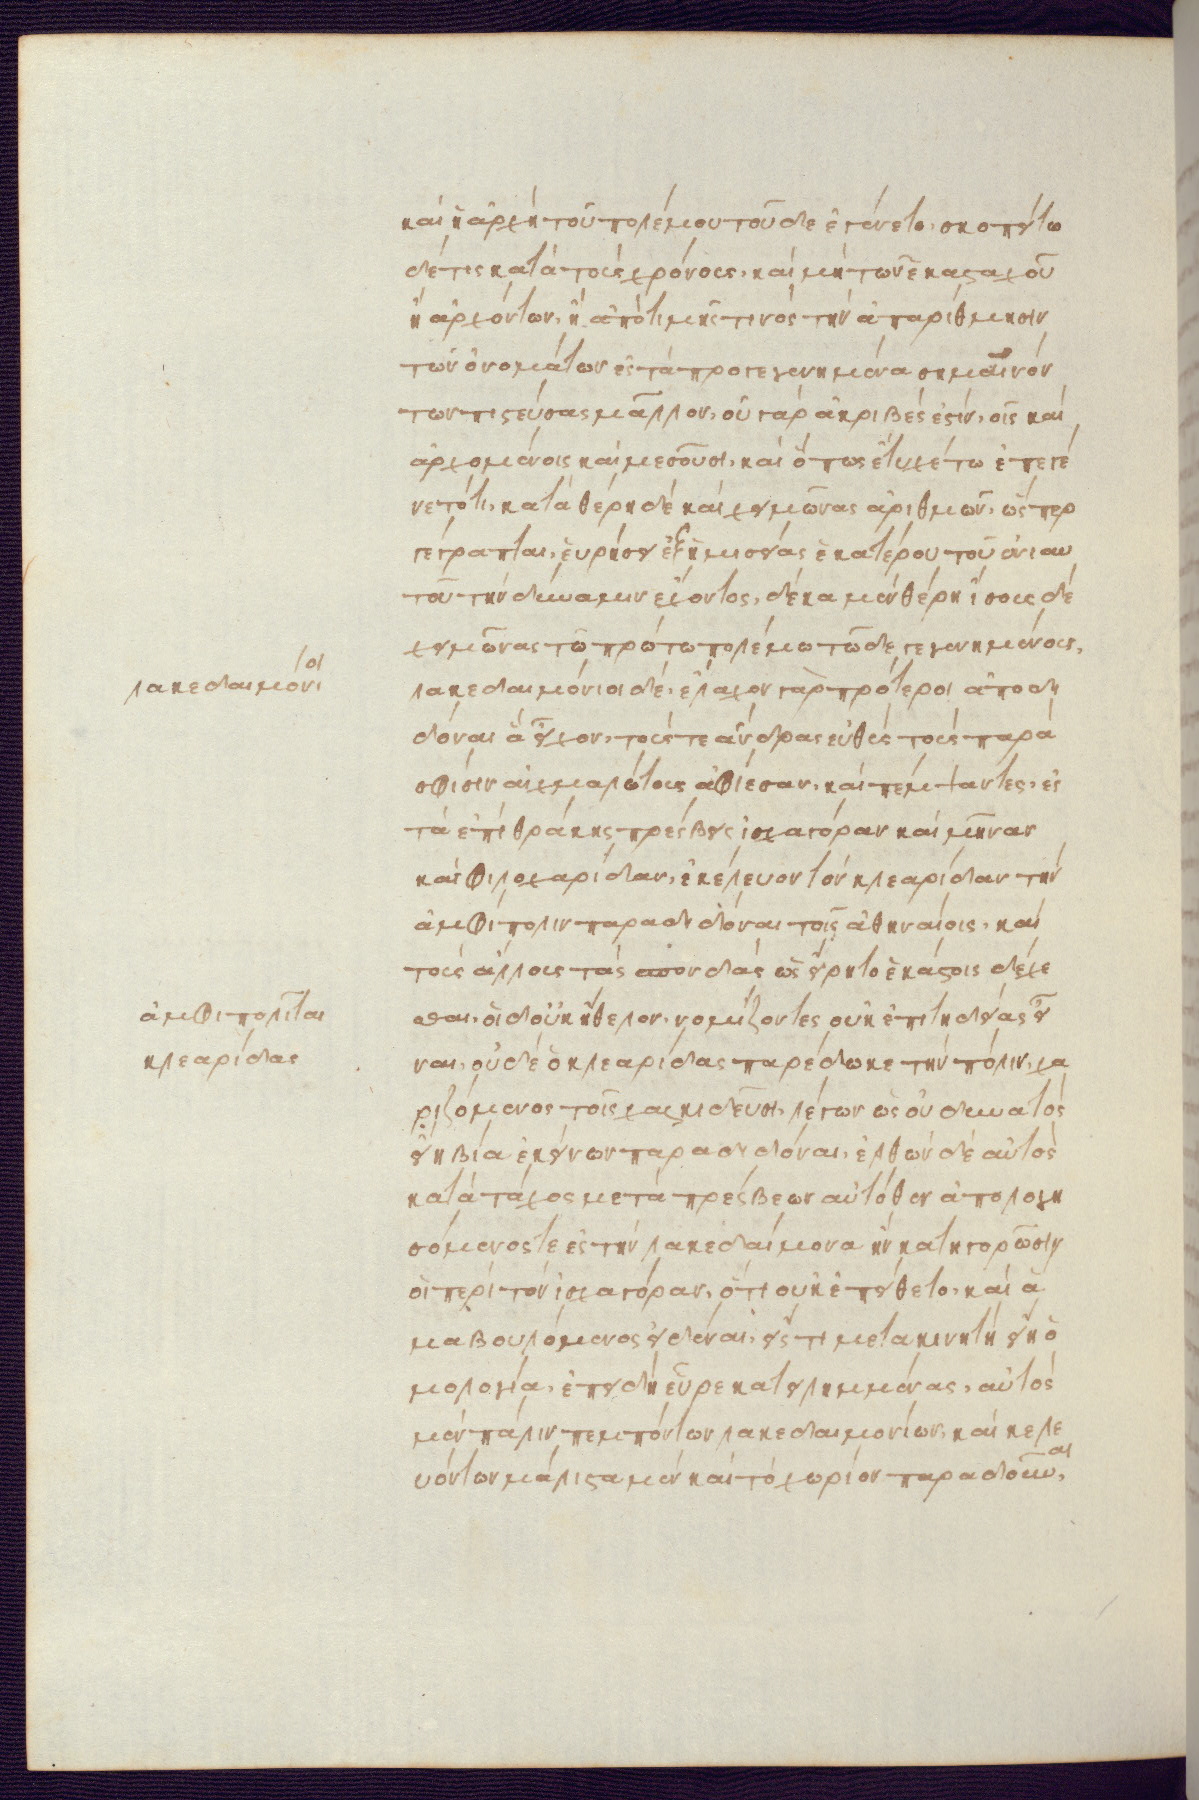 καὶ ἡ ἀρχὴ τοῦ πολέμου τοῦδε ἐγένετο. σκοπείτω
δέ τις κατὰ τοὺς χρόνους, καὶ μὴ τῶν ἑκασταχοῦ
ἢ ἀρχόντων, ἢ ἀπὸ τιμῆς τινὸς τὴν ἀπαρίθμησιν
τῶν ὀνομάτων ἐς τὰ προγεγενημένα σημαινόν
των πιστεύσας μᾶλλον. οὐ γὰρ ἀκριβές ἐστιν, οἷς καὶ
ἀρχομένοις καὶ μεσοῦσι, καὶ ὅπως ἔτυχέ τω ἐπεγέ
νετό τι. κατὰ θέρη δὲ καὶ χειμῶνας ἀριθμῶν, ὥσπερ
γέγραπται, εὑρήσει ἐξ ἡμισείας ἑκατέρου τοῦ ἐνιαυ
τοῦ τὴν δύναμιν ἔχοντος, δέκα μὲν θέρη ἴσους δὲ
χειμῶνας τῷ πρώτῳ πολέμῳ τῷδε γεγενημένους.
λακεδαιμόνιοι
λακεδαιμόνιοι δὲ, ἔλαχον γὰρ πρότεροι ἀποδι
δόναι ἃ εἶχον, τούς τε ἄνδρας εὐθὺς τοὺς παρὰ
σφίσιν αἰχμαλώτους ἀφίεσαν, καὶ πέμψαντες, ἐς
τὰ ἐπὶ θράκης πρέσβεις ἰσχαγόραν καὶ μῆναν
καὶ φιλοχαρίδαν, ἐκέλευον τὸν κλεαρίδαν τὴν
ἀμφίπολιν παραδιδόναι τοῖς ἀθηναίοις, καὶ
τοὺς ἄλλους τὰς σπονδὰς ὡς εἴρητο ἑκάστοις δέχε
ἀμφιπολῖται
σθαι. οἱ δ' οὐκ ἤθελον, νομίζοντες οὐκ ἐπιτηδείας εἶ
κλεαρίδας
ναι. οὐδὲ ὁ κλεαρίδας παρέδωκε τὴν πόλιν, χα
ριζόμενος τοῖς χαλκιδεῦσι, λέγων ὡς οὐ δυνατὸς
εἴη βίᾳ ἐκείνων παραδιδόναι. ἐλθὼν δὲ αὐτὸς
κατὰ τάχος μετὰ πρέσβεων αὐτόθεν ἀπολογη
σόμενός τε ἐς τὴν λακεδαίμονα ἢν κατηγορῶσιν
οἱ περὶ τὸν ἰσχαγόραν, ὅτι οὐκ ἐπείθετο, καὶ ἅ
μα βουλόμενος εἰδέναι, εἰ ἔτι μετακινητὴ εἴη ἡ ὁ
μολογία, ἐπειδὴ εὗρε κατειλημμένας, αὐτὸς
μὲν πάλιν πεμπόντων λακεδαιμονίων, καὶ κελε
υόντων μάλιστα μὲν καὶ τὸ χωρίον παραδοῦναι,